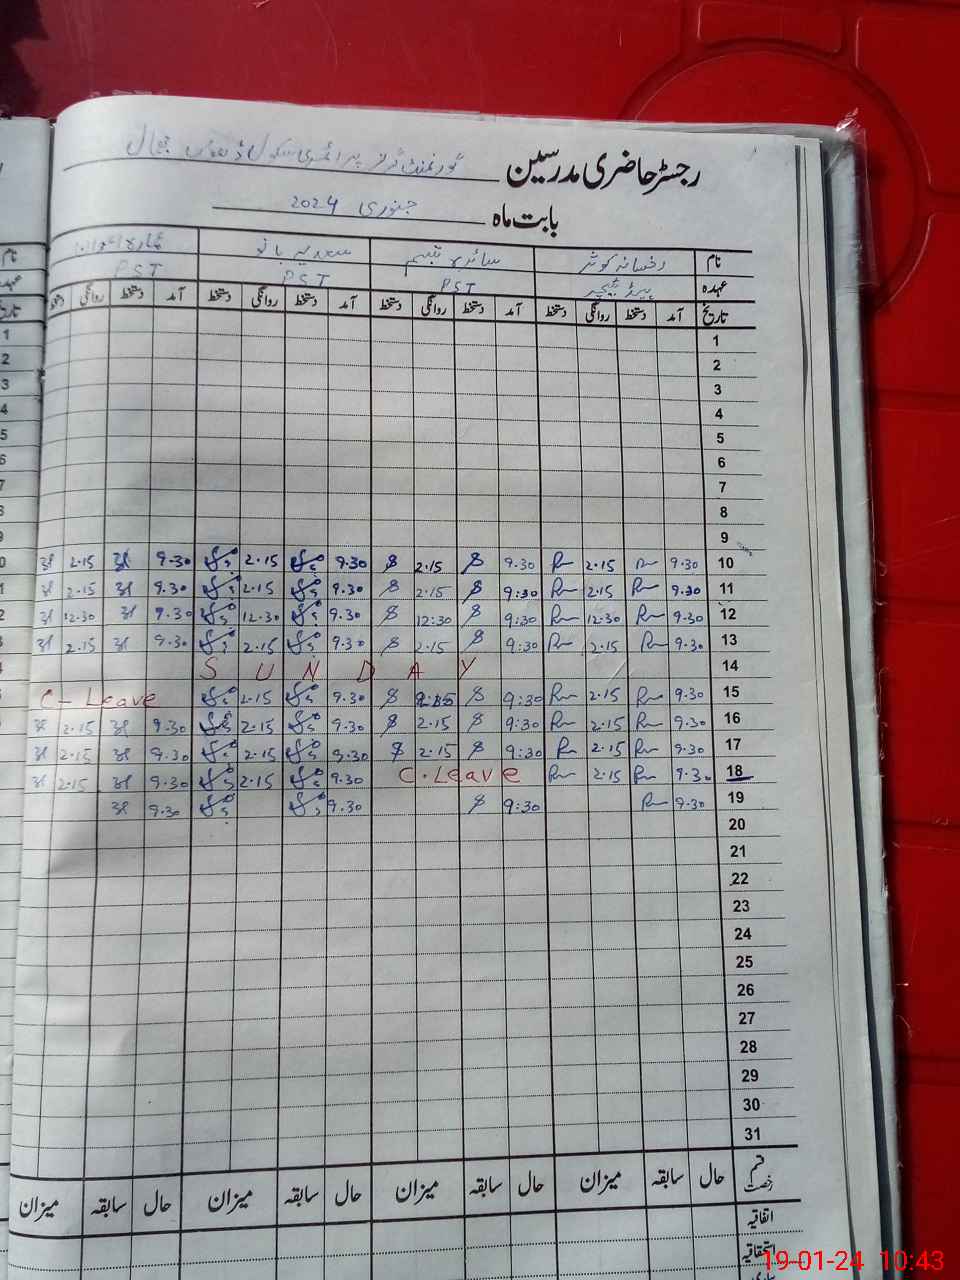 رجسٹر حاضری مدرسین گورنمنٹ گرلز پرائمری سکول
بابت ماہ جنوری 2024
نام رخسانہ کوثر سائرہ تبسم سعدیہ بانو
عہدہ ہیڈ ٹیچر PST PST PST
تاریخ آمد دستخط روانگی دستخط آمد دستخط روانگی دستخط آمد دستخط روانگی دستخط آمد دستخط روانگی
1
2
3
4
5
6
7
8
9
10 9.30 2.15 9.30 2.15 9.30 2.15 9.30 2.15
11 9.30 2.15 9:30 2.15 9.30 2.15 9.30 2.15
12 9.30 12.30 9:30 12:30 9.30 12.30 9.30 12.30
13 9.30 2.15 9:30 2.15 9.30 2.15 9.30 2.15
14 SUNDAY
15 9.30 2.15 9:30 9.30 2.15 C-Leave
16 9.30 2.15 9:30 2.15 9.30 2.15 9.30 2.15
17 9.30 2.15 9:30 2.15 9.30 2.15 9.30 2.15
18 9.30 2.15 C.Leave 9.30 2.15 9.30 2.15
19 9.30 9:30 9.30 9.30
20
21
22
23
24
25
26
27
28
29
30
31
قسم رخصت حال سابقہ میزان حال سابقہ میزان حال سابقہ میزان حال سابقہ میزان
اتفاقیہ
استحقاقیہ
19-01-24 10:43